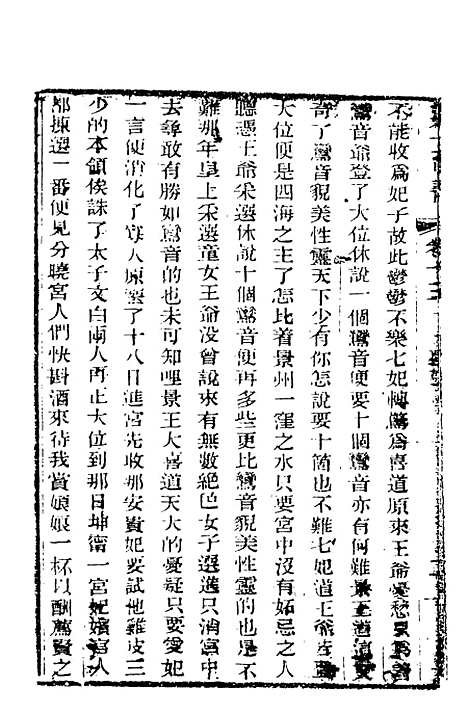 不能收爲妃子故此鬱鬱不樂七妃轉驚爲喜道原來王爺憂愁只爲着
鸞音爺登了大位休說一個鸞音便要十個鸞音亦有何難景王道這又
奇了鸞音貌美性靈天下少有你怎說要十箇也不難七妃道王爺若
大位便是四海之主了怎比着景州一窪之水只要宮中沒有妬忌之人
聽憑王爺采選休說十個鸞音便再多些更比鸞音貌美性靈的也是不
難那年皇上采選童女王爺沒曾說來有無數絶色女子選進只消宮中
去尋敢有勝如鸞音的也未可知哩景王大喜道天大的憂疑只要愛妃
一言便消化了寡人原選了十八日進宮先收那安貴妃要試他雞皮三
少的本領俟誅了太子文白兩人再正大位到那日坤衛一宮妃嬪宮人
都揀選一番便見分曉宮人們快斟酒來待我賞娘娘一杯以酬薦賢之